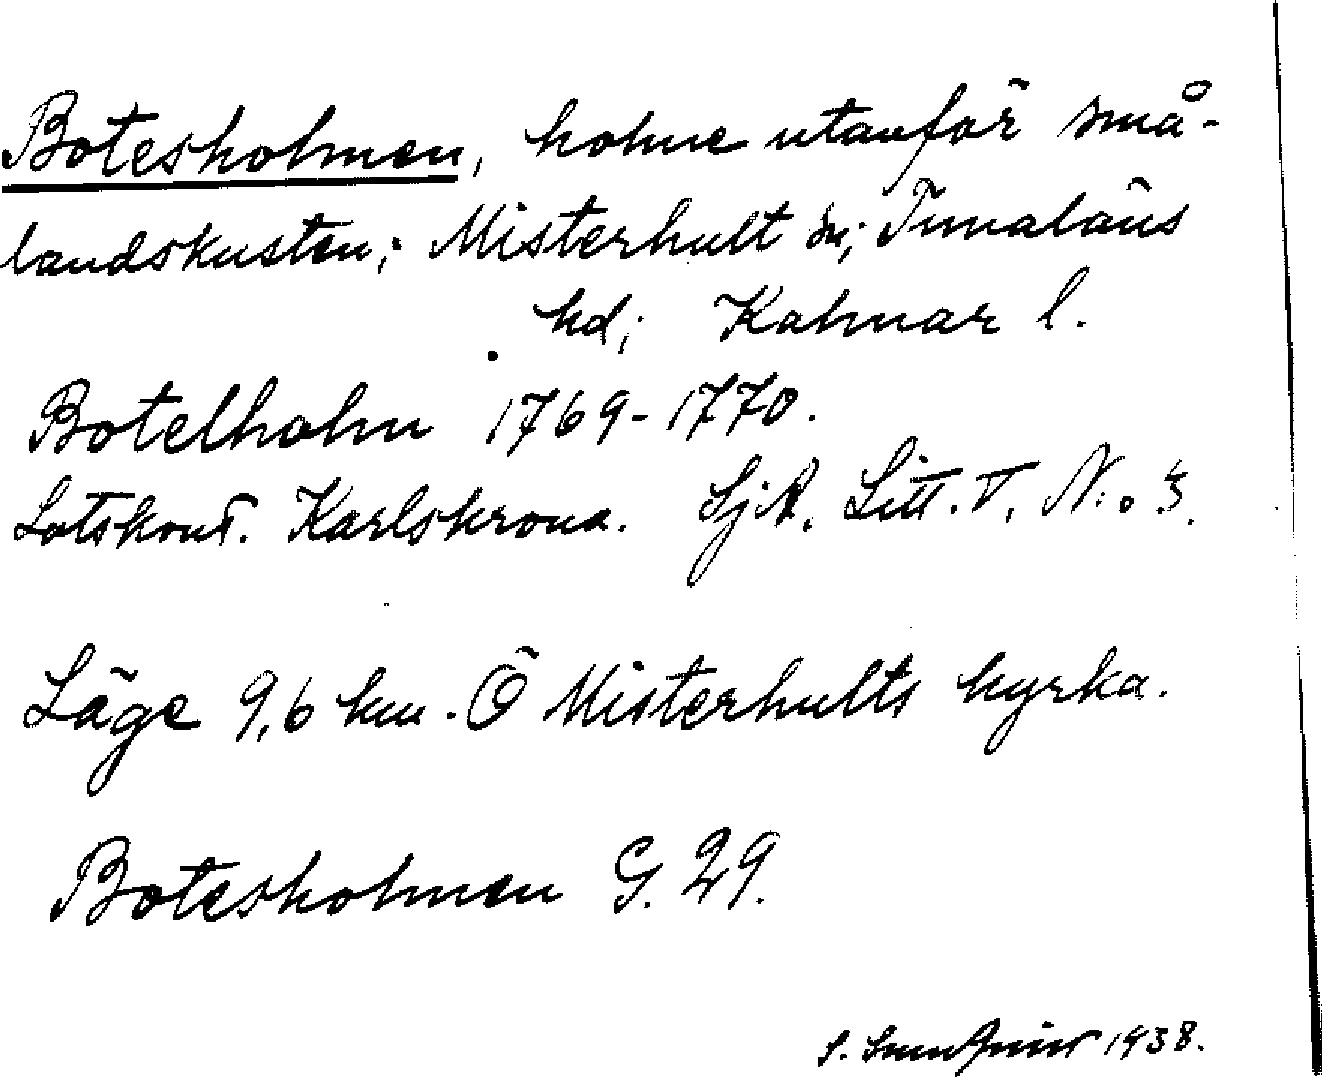 Botesholmen, holme utanför små-
landskusten; Misterhult sn; Tunaläns
hd; Kalmar l.
Botelholm 1769-1770.
Lotskont. Karlskrona. SjA. Litt. T, N:o 3.
Läge 9,6 km. Ö Misterhults kyrka.
Botesholmen G. 29.
S. 1938.